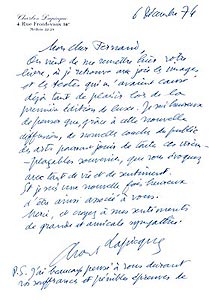 Charles Lapicque
4 Rue Froidevaux 14e
6 Décembre 74
Mon cher Fernand
On vient de me remettre hier votre
livre, où je retrouve avec joie les images
et les textes qui m'avaient causé
déjà tant de plaisir lors de la
première édition de luxe. Je suis heureux
de penser que, grâce à cette nouvelle
diffusion, de nouvelles couches du public
des arts pourront jouir de tant de
souvenirs, que vous évoquez
avec tant de vie et de sentiment.
Et je suis une nouvelle fois heureux
d'être ainsi associé à vous.
Merci, et croyez à mes sentiments
de grande et amicale sympathie.
Charles Lapicque
P.S. J'ai beaucoup pensé à vous durant
vos souffrances et pénibles épreuves de